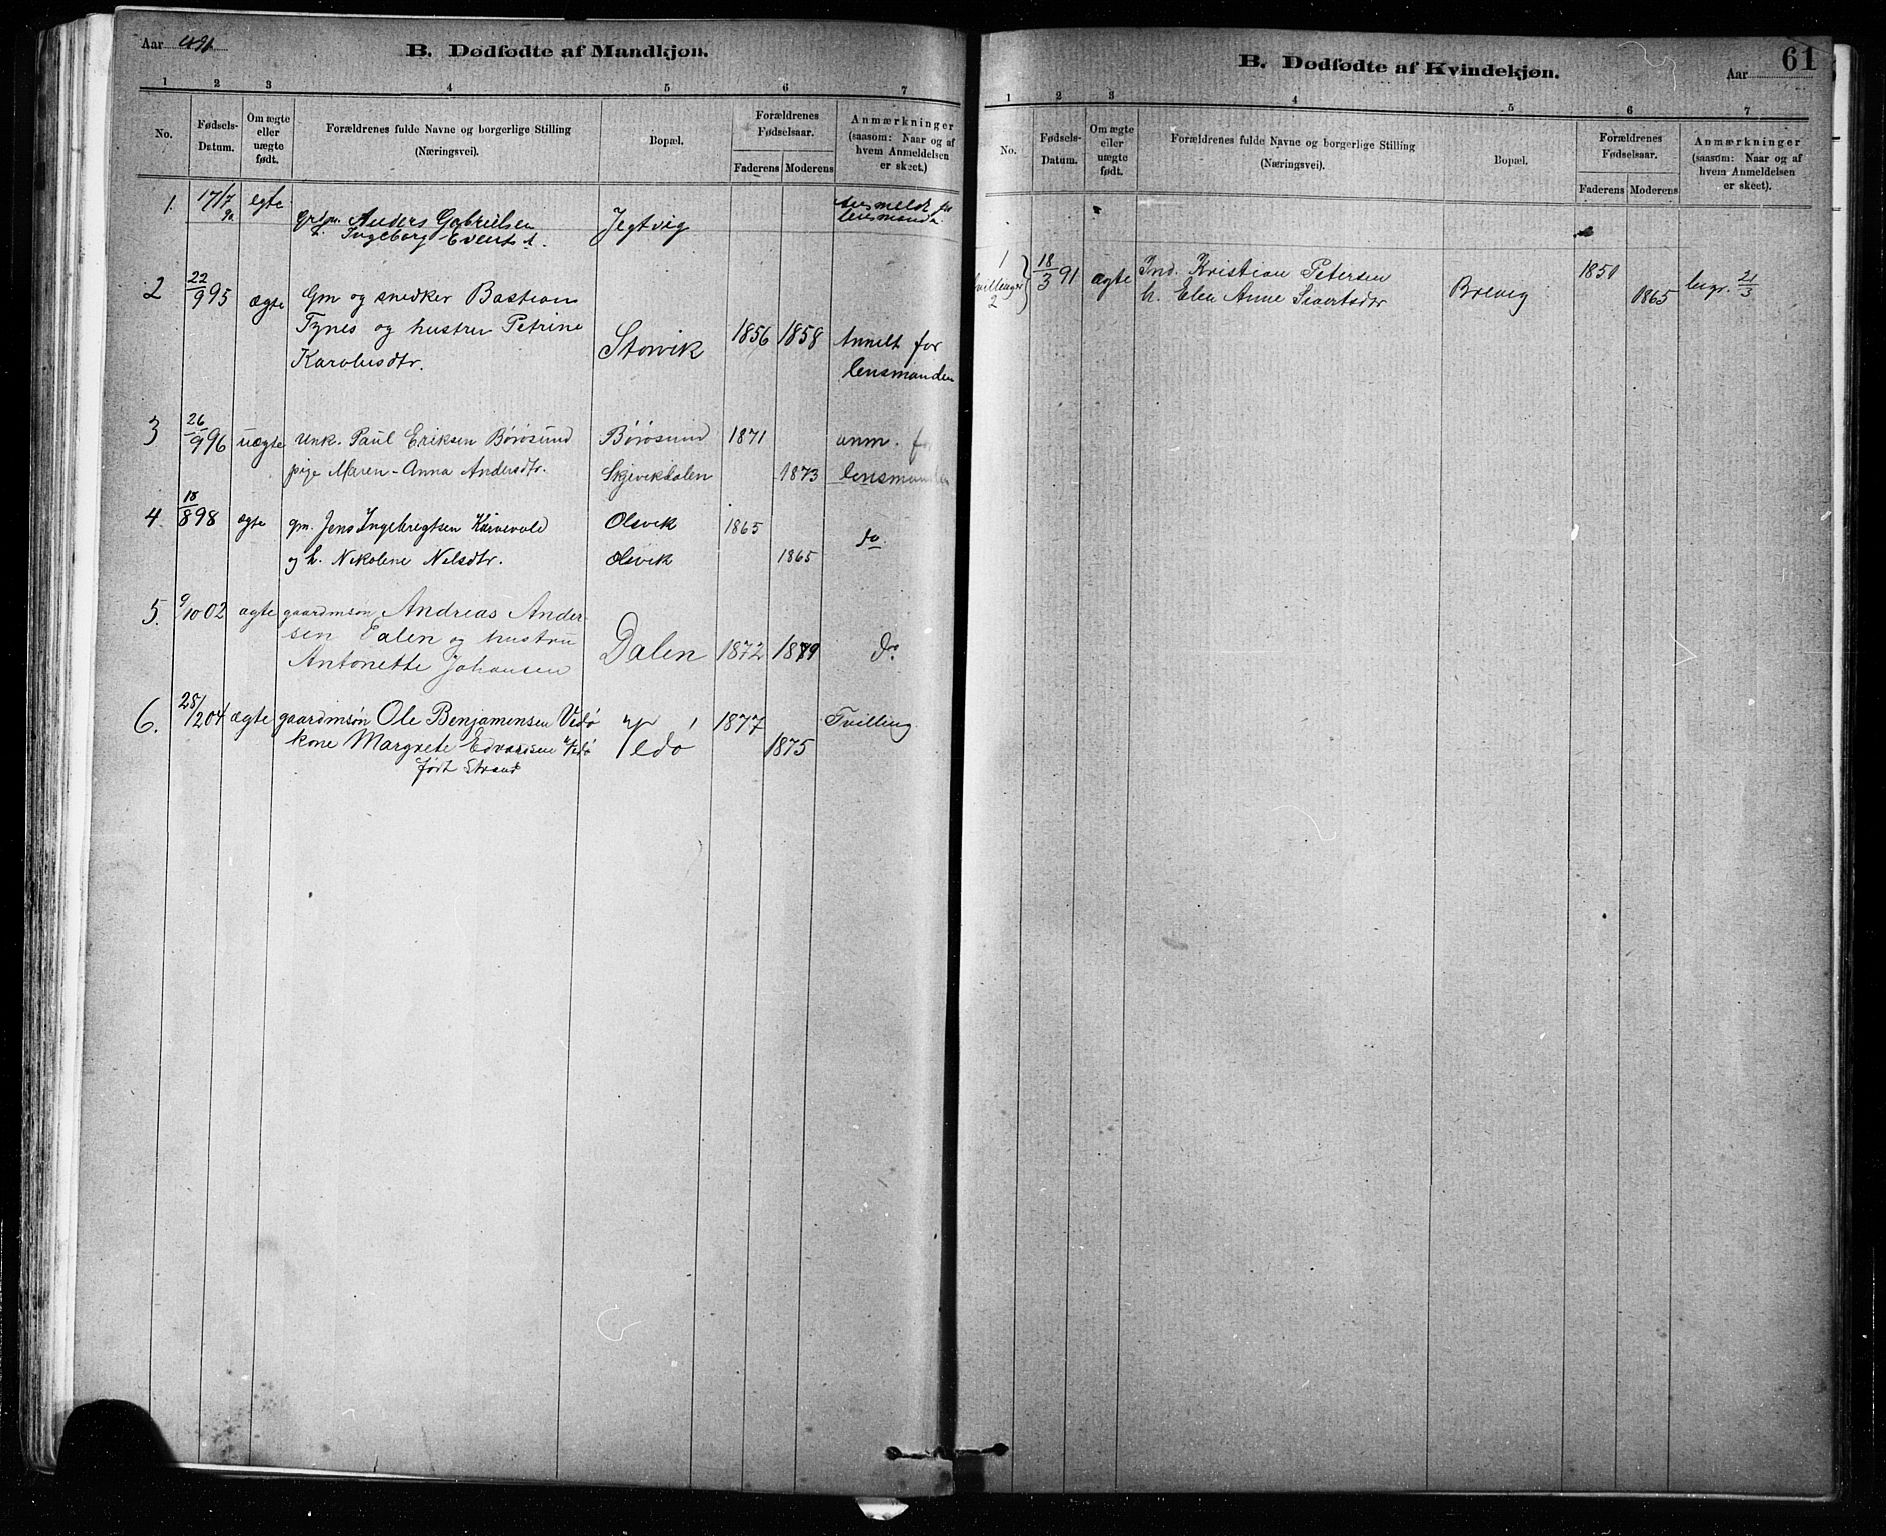 Aar
B. Dødfødte af Mandkjøn.
1 2 3 4 5 6 7
No.
Fødsels-
Datum.
Om ægte
eller
uægte
født.
Forældrenes fulde Navne og borgerlige Stilling
(Næringsvei).
Bopæl.
Forældrenes
Fødselsaar.
Faderens Moderens
Anmærkninger
(saasom: Naar og af
hvem Anmeldelsen
er skeet.)
1 17/7 egte Anders Gabrielsen Jegtvig
Ingeborg
2 22/9 95 ægte Gm og snedker Bastian
Tynes og hustru Petrine Storvik 1856 1858 Anmelt for
Karolusdtr. lensmanden
3 26/9 96 uægte Unk. Paul Eriksen Børøsund Børøsund 1871 anm. for
pige Maren-Anna Andersdtr. Skjevikdalen 1873 lensmanden
4 18/8 98 ægte gm. Jens Ingebregtsen Olsvik 1865 do
og h. Nikolene Nelsdtr. Olsvik 1865
5. 9/10 02 ægte gaardmsøn Andreas Ander-
sen og hustru
Antonette Johansen Dalen 1872 1879 do
6. 28/12 04 ægte gaardmsøn Ole Benjamensen Vedø Vedø 1877 Tvilling
kone Margrete Edvardsen Vedø 1875
født Strand
B. Dødfødte af Kvindekjøn.
Aar
61
1 2 3 4 5 6 7
No.
Fødsels-
Datum.
Om ægte
eller
uægte
født.
Forældrenes fulde Navne og borgerlige Stilling
(Næringsvei).
Bopæl.
Forældrenes
Fødselsaar.
Faderens Moderens
Anmærkninger
(saasom: Naar og af
hvem Anmeldelsen
er skeet).
1 18/3 91 ægte Ind. Kristian Petersen Brevig
2 h. Elen Anne Sivertsdtr 1865 21/3